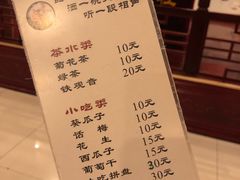 洒一杯
听一段相声
茶水类
菊花茶 10元
绿茶 10元
铁观音 20元
小吃类
葵瓜子 10元
话梅 10元
花生 10元
西瓜子 15元
葡萄干 15元
小吃拼盘 30元
30元